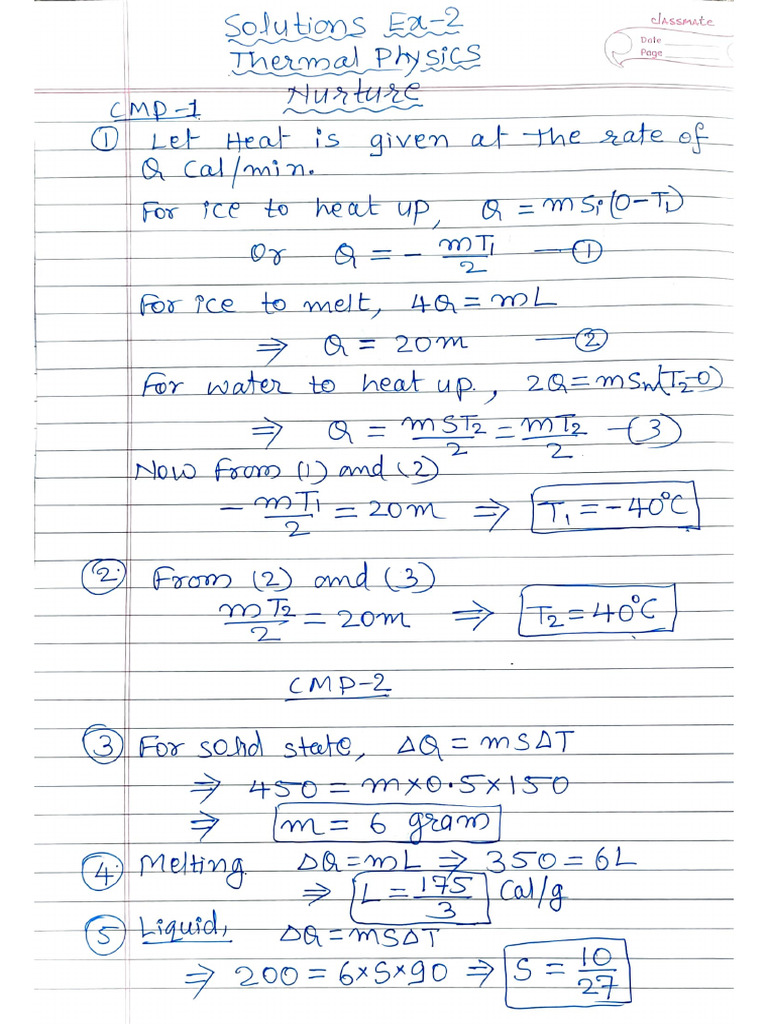 Solutions Ex-2
classmate
Date
Page
Thermal Physics
Nurture
CMP-1
① Let Heat is given at the rate of
Q Cal/min.
For ice to heat up, Q = m Si (0-T₁)
Or Q = - mT₁/2 —①
For ice to melt, 4Q = mL
⇒ Q = 20m —②
For water to heat up, 2Q = mSw(T₂-0)
⇒ Q = mST₂/2 = mT₂/2 —(3)
Now from (1) and (2)
- mT₁/2 = 20m ⇒ T₁ = -40°C
② From (2) and (3)
mT₂/2 = 20m ⇒ T₂ = 40°C
CMP-2
③ For solid state, ΔQ = msΔT
⇒ 450 = m×0.5×150
⇒ m = 6 gram
④ Melting ΔQ = mL ⇒ 350 = 6L
⇒ L = 175/3 Cal/g
⑤ Liquid, ΔQ = msΔT
⇒ 200 = 6×S×90 ⇒ S = 10/27